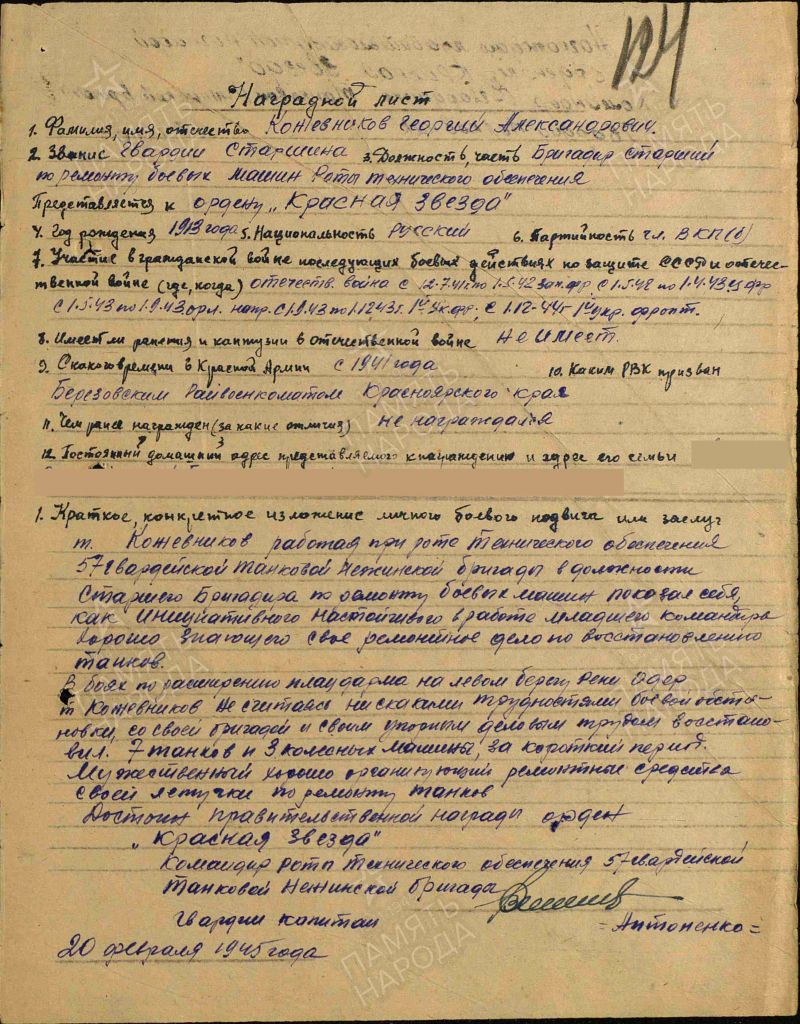 124
Наградной лист
1. Фамилия, имя, отчество Кожевников Георгий Александрович.
2. Звание Гвардии Старшина 3. Должность, часть Бригадир старший
по ремонту боевых машин Роты технического обеспечения
Представляется к ордену „Красная Звезда"
4. Год рождения 1913 года 5. Национальность Русский 6. Партийность чл. ВКП(б)
7. Участие в гражданской войне последующих боевых действиях по защите СССР и отечес-
твенной войне (где, когда) отечеств. война с 12.7.41 по 1.5.42 зап. фр с 1.5.42 по 1.4.43
с 1.5.43 по 1.9.43 орл. напр. с 1.9.43 по 1.12.43 г. 1й Ук. фр; с 1.12-44г 1й укр. фронт.
8. Имеет ли ранения и контузии в отечественной войне Не имеет.
9. С какого времени в Красной Армии с 1941 года 10. Каким РВК призван
Березовским Райвоенкоматом Красноярского края
11. Чем ранее награжден (за какие отличия) не награждался
12. Постоянный домашний адрес представляемого к награждению и адрес его семьи
1. Краткое, конкретное изложение личного боевого подвига или заслуг
т. Кожевников работая при роте технического обеспечения
57 гвардейской Танковой Нежинской бригады в должности
Старшего Бригадира по ремонту боевых машин показал себя,
как инициативного настойчивого в работе младшего командира
хорошо знающего свое ремонтное дело по восстановлению
танков.
В боях по расширению плацдарма на левом берегу реки Одер
т. Кожевников не считаясь ни с какими трудностями боевой обста-
новки, со своей бригадой и своим упорным деловым трудом восстано-
вил. 7 танков и 3 колесных машины, за короткий период.
Мужественный хорошо организующий ремонтные средства
своей летучки по ремонту танков
Достоин правительственной награды орден
„Красная Звезда"
Командир Роты технического обеспечения 57 гвардейской
Танковой Нежинской Бригады
Гвардии капитан
= Антоненко =
20 февраля 1945 года
ПАМЯТЬ НАРОДА